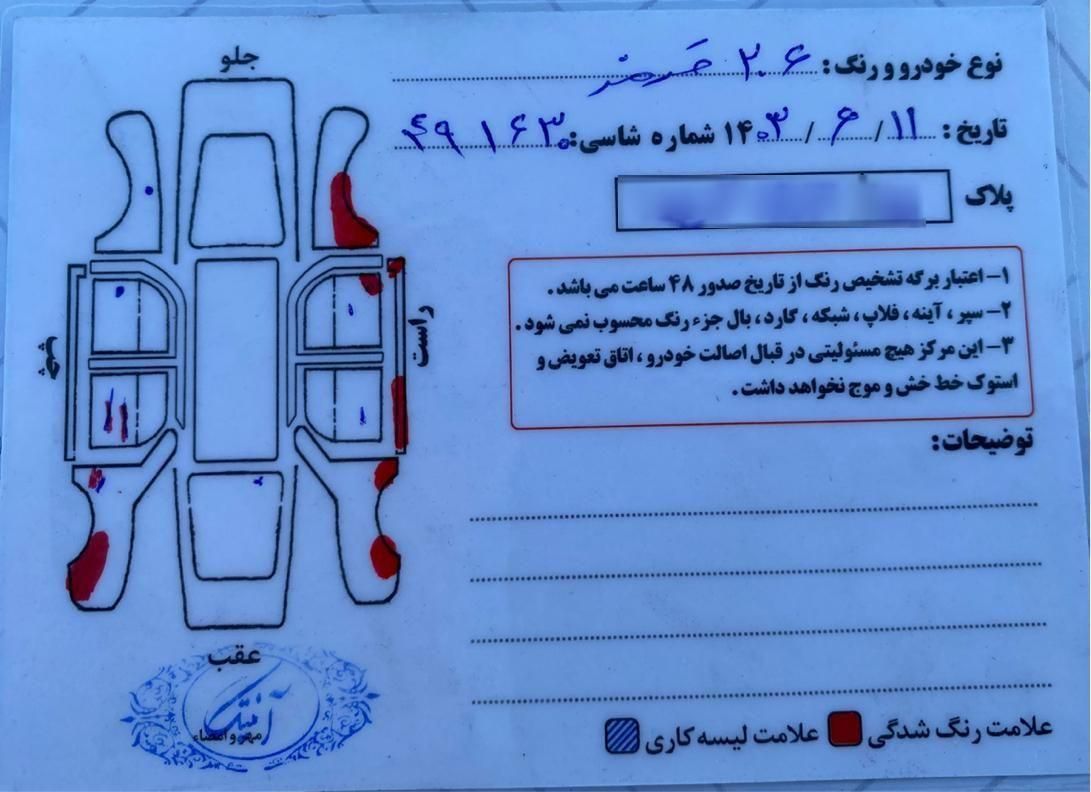 جلو
نوع خودرو و رنگ: ۲۰۶ قرمز
تاریخ: ۱۱ / ۶ / ۱۴۰۳ شماره شاسی: ۴۹۱۶۳۰
پلاک
۱- اعتبار برگه تشخیص رنگ از تاریخ صدور ۴۸ ساعت می باشد.
۲- سپر، آینه، فلاپ، شبکه، گارد، بال جزء رنگ محسوب نمی شود.
۳- این مرکز هیچ مسئولیتی در قبال اصالت خودرو، اتاق تعویض و
استوک خط خش و موج نخواهد داشت.
راست
چپ
توضیحات:
عقب
آنتیک
مهر و امضاء
علامت رنگ شدگی
علامت لیسه کاری